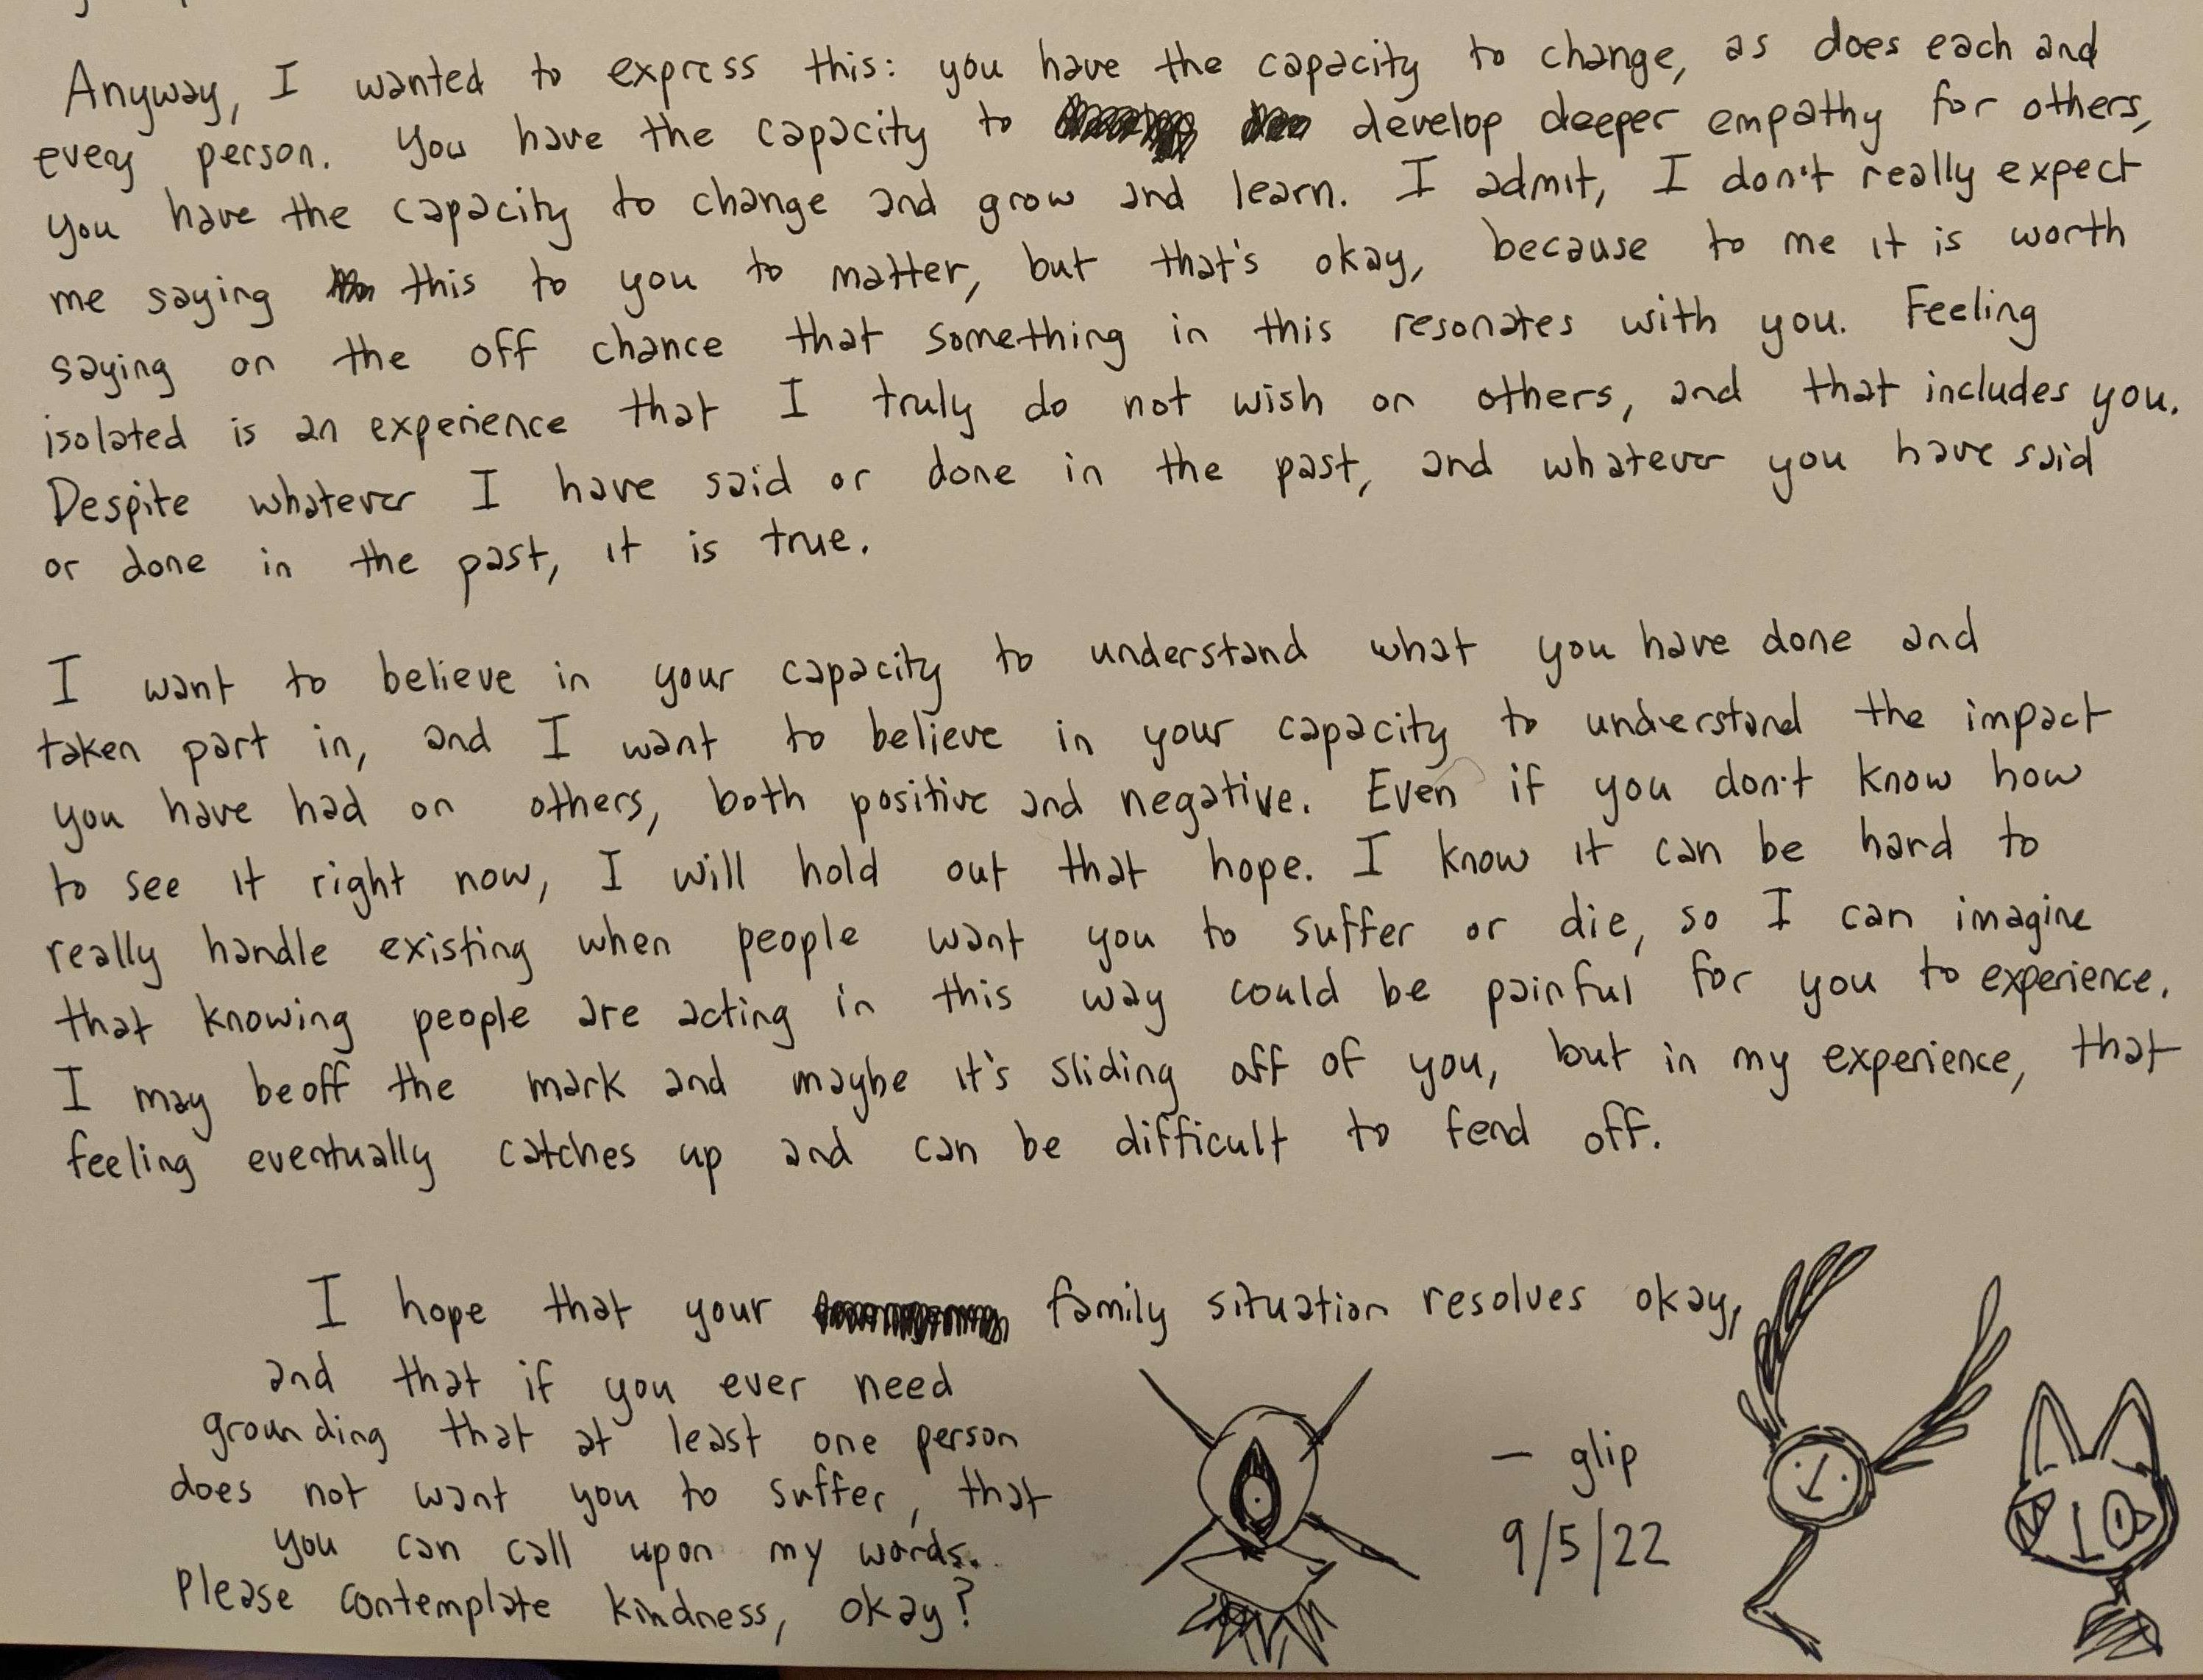 Anyway, I wanted to express this: you have the capacity to change, as does each and
every person. You have the capacity to develop deeper empathy for others,
you have the capacity to change and grow and learn. I admit, I don't really expect
me saying this to you to matter, but that's okay, because to me it is worth
saying on the off chance that something in this resonates with you. Feeling
isolated is an experience that I truly do not wish on others, and that includes you.
Despite whatever I have said or done in the past, and whatever you have said
or done in the past, it is true.
I want to believe in your capacity to understand what you have done and
taken part in, and I want to believe in your capacity to understand the impact
you have had on others, both positive and negative. Even if you don't know how
to see it right now, I will hold out that hope. I know it can be hard to
really handle existing when people want you to suffer or die, so I can imagine
that knowing people are acting in this way could be painful for you to experience.
I may be off the mark and maybe it's sliding off of you, but in my experience, that
feeling eventually catches up and can be difficult to fend off.
I hope that your family situation resolves okay,
and that if you ever need
grounding that at least one person
does not want you to suffer, that
you can call upon my words.
Please contemplate kindness, okay?
— glip
9/5/22